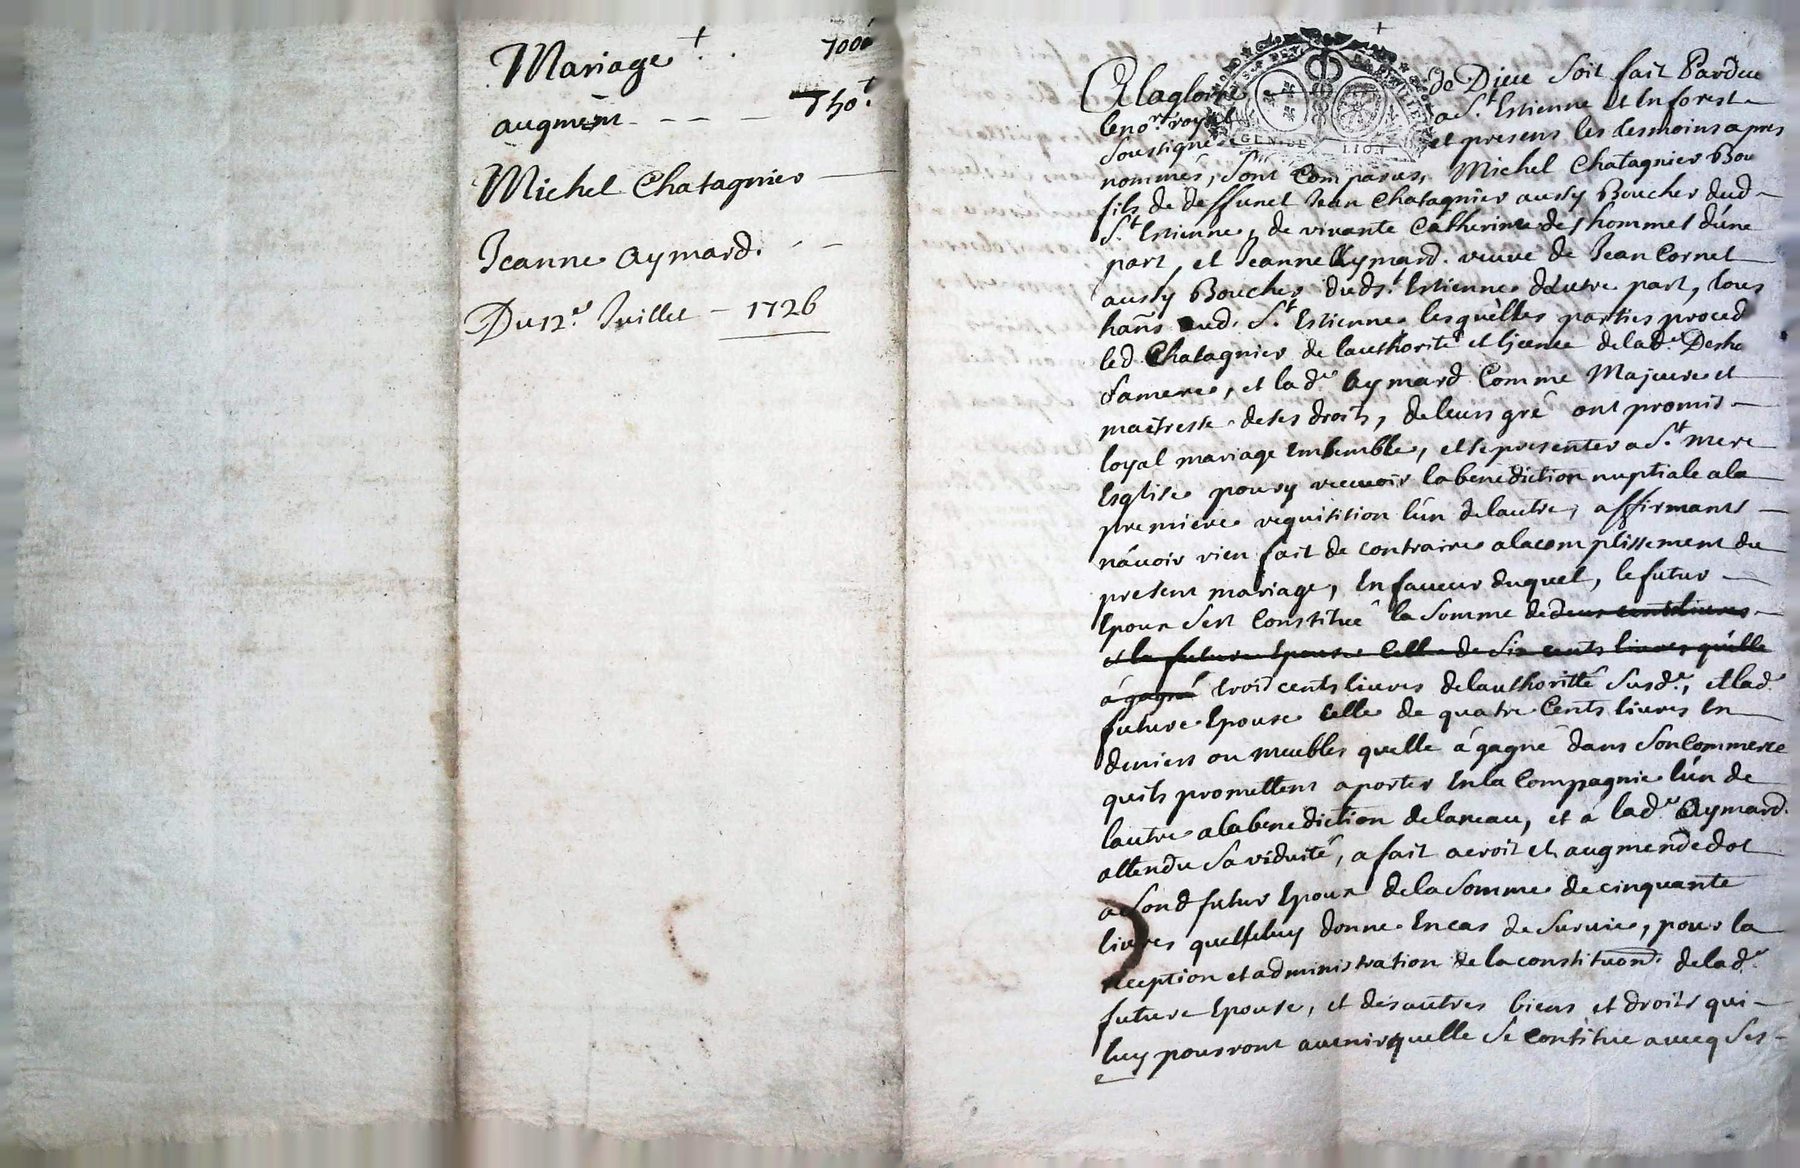 Mariage + . 700ᵗ
augment - - - - 50ᵗ
Michel Chatagnier
Jeanne Aymard.
Du 12.ᵉ Juillet - 1726
A la gloire de Dieu soit fait Pardeu
le no.ʳᵉ royal a S.ᵗ Estienne et En forest
soussigné et presens les tesmoins apres
GEN. DE LION
nommés, sont comparus, Michel Chatagnier Bou
fils de deffunct Jean Chatagnier aussy Boucher dud
S.ᵗ Estienne, de vivante Catherine deshommet d'une
part, et Jeanne Aymard. veuve de Jean Cornet
aussy Boucher dud s.ᵗ Estienne d'autre part, tous
hañs aud. S.ᵗ Estienne lesquelles parties proced
led Chatagnier de l'authorité et licence de lad.ᵉ Desho
sa mere, et lad.ᵉ Aymard Comme Majeure et
maitresse de ses droits, de leurs gré ont promis
loyal mariage Ensemble, et se presenter a S.ᵗ mere
Esglise pour y recevoir la benediction nuptiale a la
premiere requisition l'un de lautre, affirmants
n'avoir rien fait de contraire a lacomplissement du
present mariage, En faveur duquel, le futur
Epoux s'est Constitué la somme de deux cents livres
et la future Epouse Celle de six cents livres qu'elle
á gagné trois cents livres de lauthoritté susd.ᵉ, et lad.ᵉ
future Epouse celle de quatre Cents livres En
deniers ou meubles quelle á gagné dans son Commerce
quils promettent aporter En la Compagnie l'un de
lautre a la benediction de laneau, et á lad.ᵉ Aymard.
attendu sa viduité, a fait acroit et augment de dot
a sond futur Epoux de la somme de cinquante
livres quelle luy donne En cas de survie, pour la
reception et administration de la constituõn. de lad.ᵉ
future Epouse, et des autres biens et droits qui
luy pourront avenir quelle se constitue avecq ses